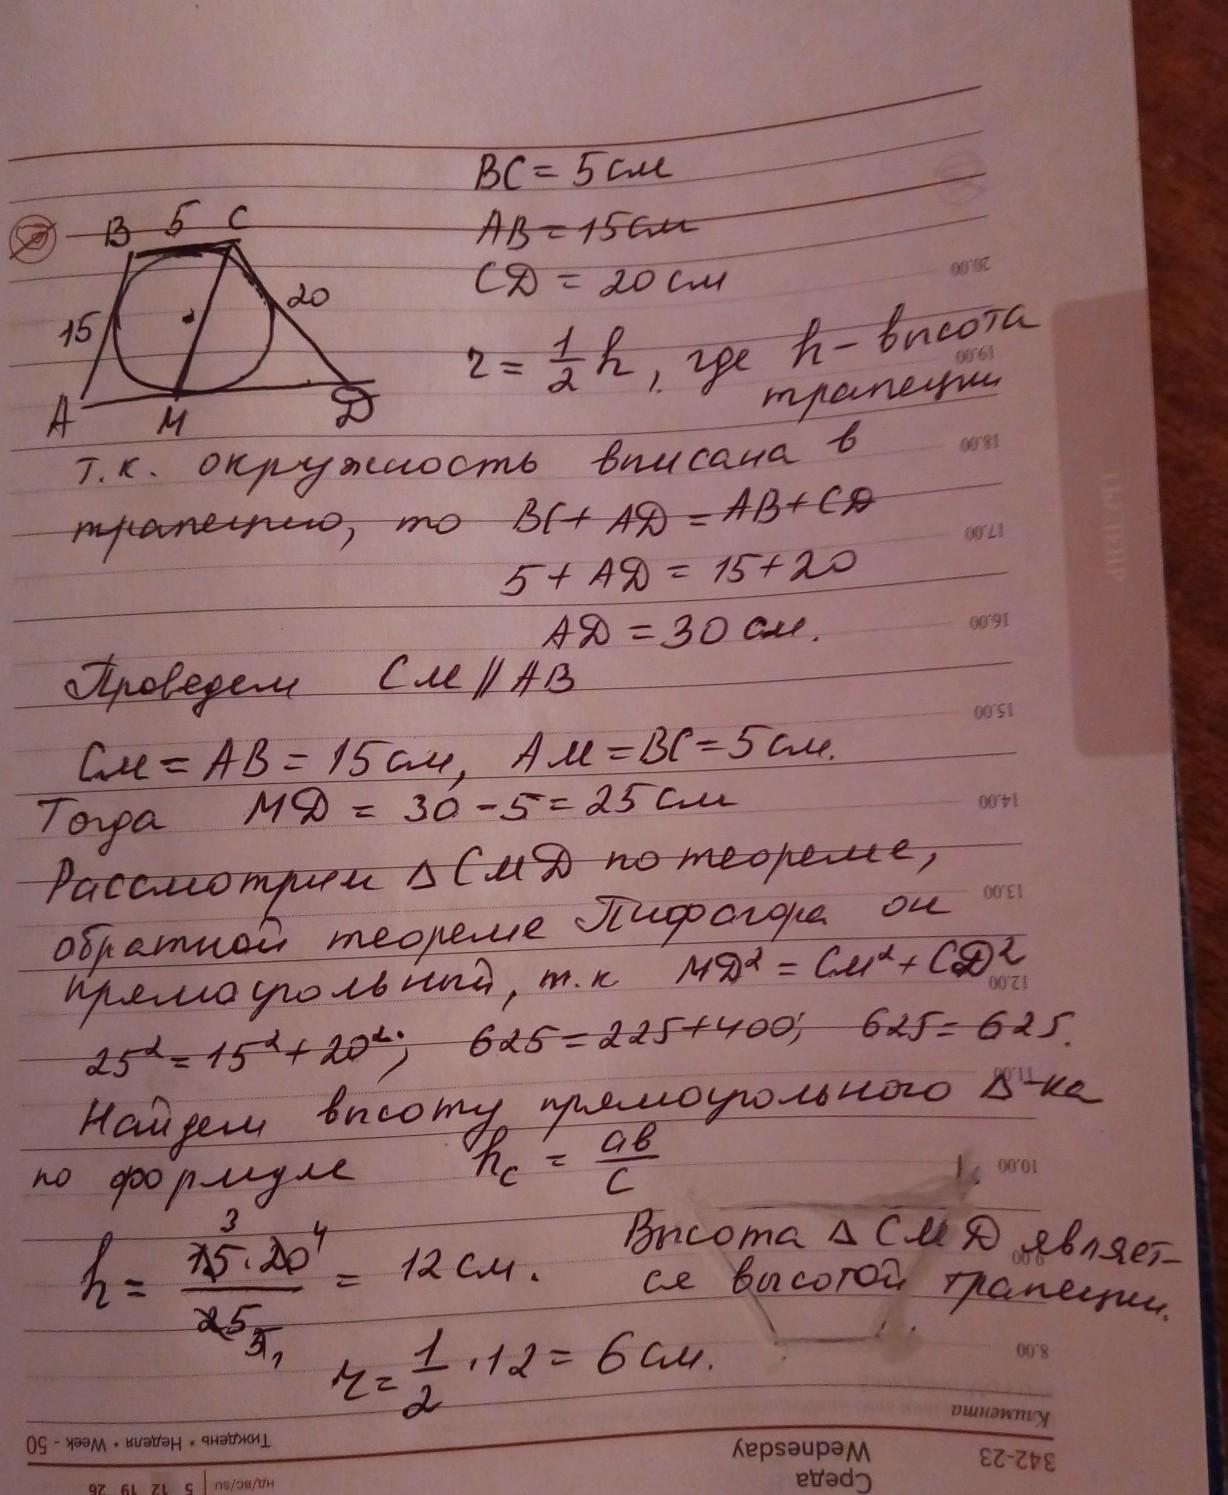 BC = 5 см
AB = 15 см
CD = 20 см
B 5 C
15
20
A M D
r = 1/2 h, где h - высота
трапеции
т.к. окружность вписана в
трапецию, то BC + AD = AB + CD
5 + AD = 15 + 20
AD = 30 см.
Проведем CM || AB
CM = AB = 15 см, AM = BC = 5 см.
Тогда MD = 30 - 5 = 25 см
Рассмотрим Δ CMD по теореме,
обратной теореме Пифагора он
прямоугольный, т.к MD² = CM² + CD²
25² = 15² + 20²; 625 = 225 + 400; 625 = 625.
Найдем высоту прямоугольного Δ-ка
по формуле h_c = ав/с
h = 15 · 20 / 25 = 12 см.
3 4
5,
Высота Δ CMD являет-
ся высотой трапеции.
r = 1/2 · 12 = 6 см.
20.00
19.00
18.00
17.00
16.00
15.00
14.00
13.00
12.00
11.00
10.00
9.00
8.00
Климента
342-23
Среда
Wednesday
Тиждень • Неделя • Week - 50
НД/ВС/SU 5 12 19 26